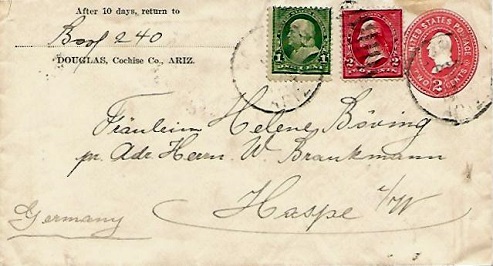 After 10 days, return to
Box 240
DOUGLAS, Cochise Co., ARIZ.
1 1
2 2
UNITED STATES POSTAGE
2
TWO CENTS
Fräulein Helene Böving
pr. Adr. Herrn W. Braukmann
Haspe i/W
Germany